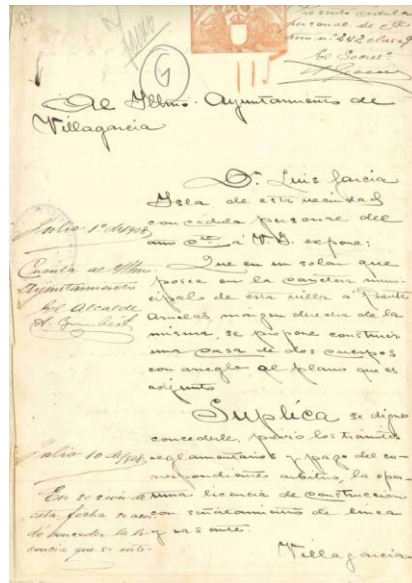 Presentó cédula
personal de este
año nº 242 clase 9
El Secreº
Al Yllmo. Ayuntamiento de
Villagarcia
Dn. Luis Garcia
Isla de esta vecindad
con cédula personal del
año cte. á V. S. expone:
Que en un solar que
posee en la carretera muni-
cipal de esta villa á Puente
Arnelas, margen derecha de la
misma, se propone construir
una casa de dos cuerpos
con arreglo al plano que es
adjunto
Suplica se digne
concederle, previo los trámites
reglamentarios y pago del co-
rrespondiente arbitrio, la opor-
tuna licencia de construccion
con señalamiento de linea
y rasante.
Villagarcia
Julio 1º de 1908
Cuenta al Yllmo
Ayuntamiento
El Alcalde
Julio 10 de 908
En sesión de
esta fecha se acor-
dó conceder la li-
cencia que se inte-